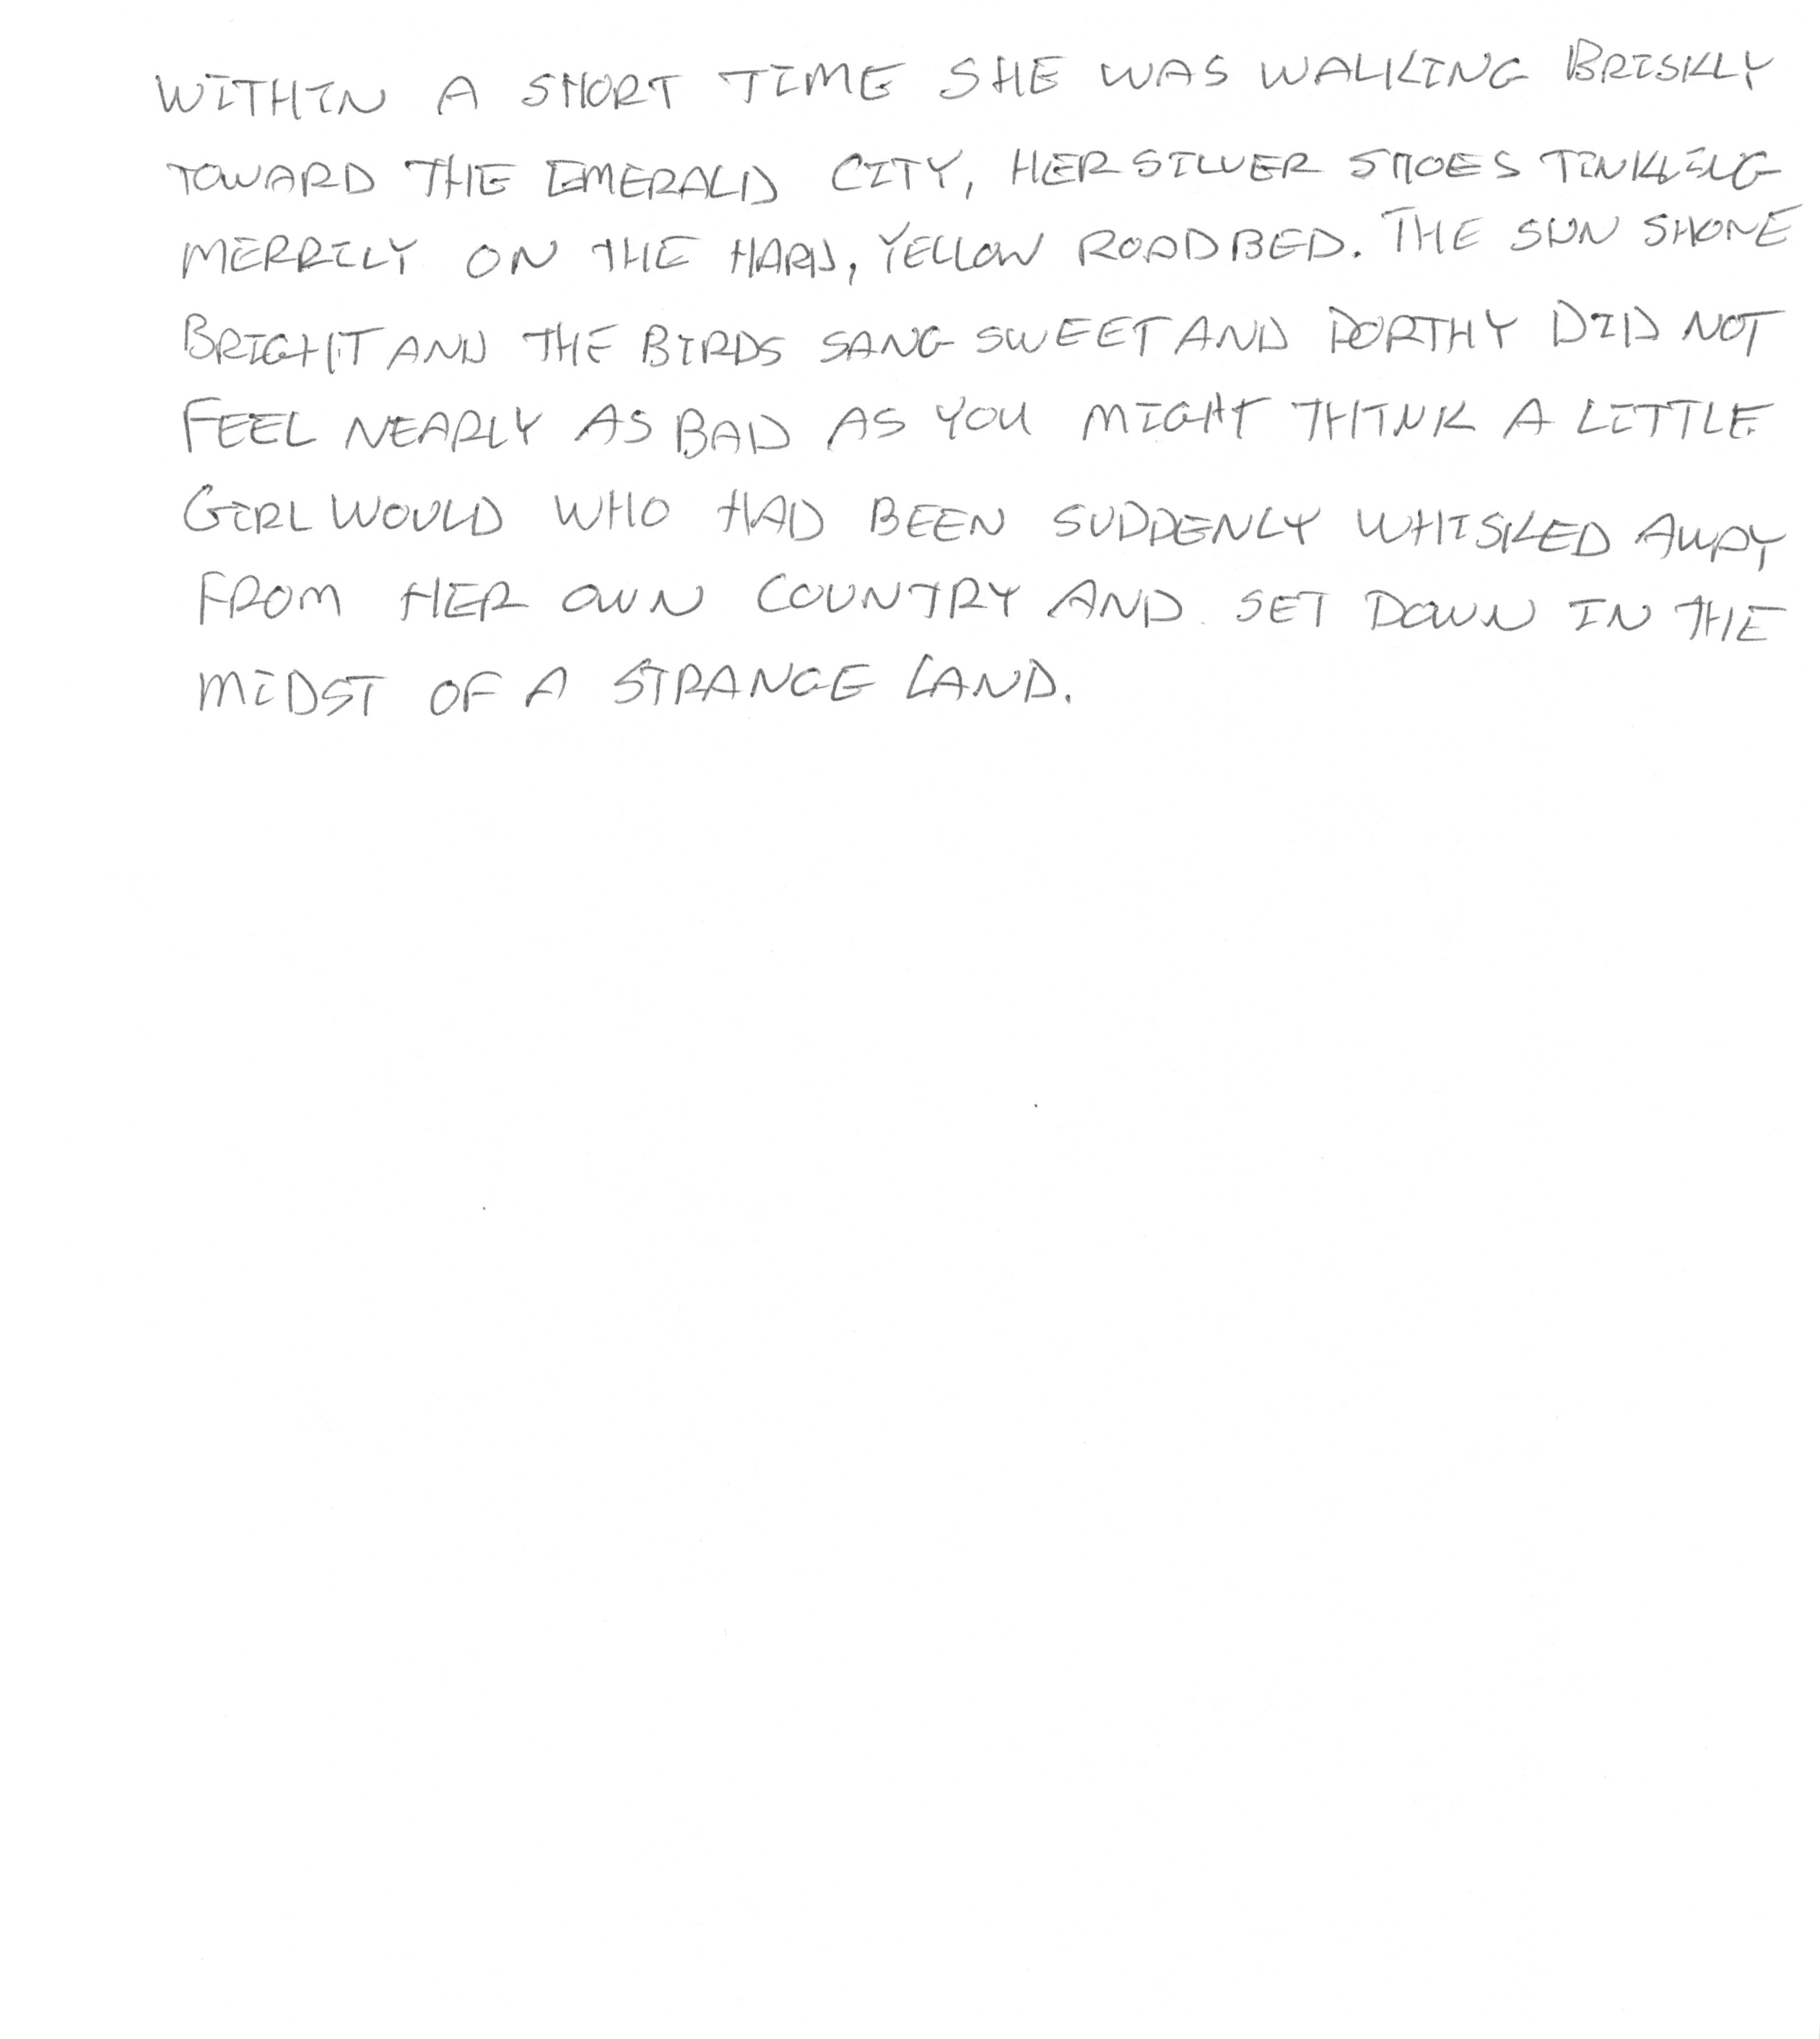 WITHIN A SHORT TIME SHE WAS WALKING BRISKLY
TOWARD THE EMERALD CITY, HER SILVER SHOES TINKLING
MERRILY ON THE HARD, YELLOW ROADBED. THE SUN SHONE
BRIGHT AND THE BIRDS SANG SWEET AND DORTHY DID NOT
FEEL NEARLY AS BAD AS YOU MIGHT THINK A LITTLE
GIRL WOULD WHO HAD BEEN SUDDENLY WHISKED AWAY
FROM HER OWN COUNTRY AND SET DOWN IN THE
MIDST OF A STRANGE LAND.